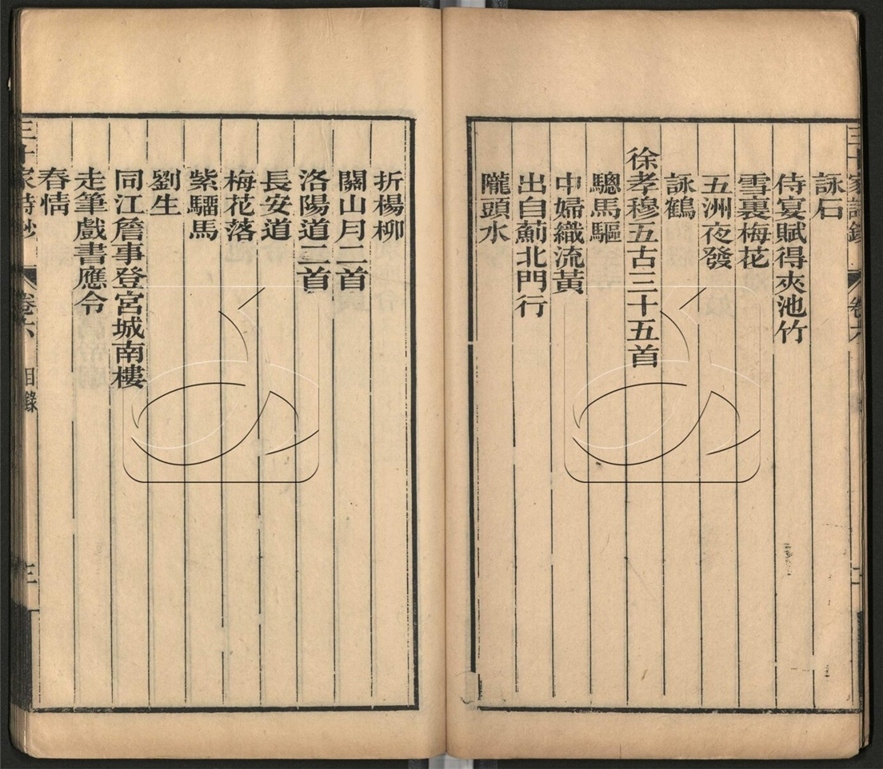 詠石
侍宴賦得夾池竹
雪裏梅花
五洲夜發
詠鶴
徐孝穆五古三十五首
驄馬驅
中婦織流黃
出自薊北門行
隴頭水
折楊柳
關山月二首
洛陽道二首
長安道
梅花落
紫騮馬
劉生
同江詹事登宮城南樓
走筆戲書應令
春情
三十家詩鈔
卷六
目錄
三